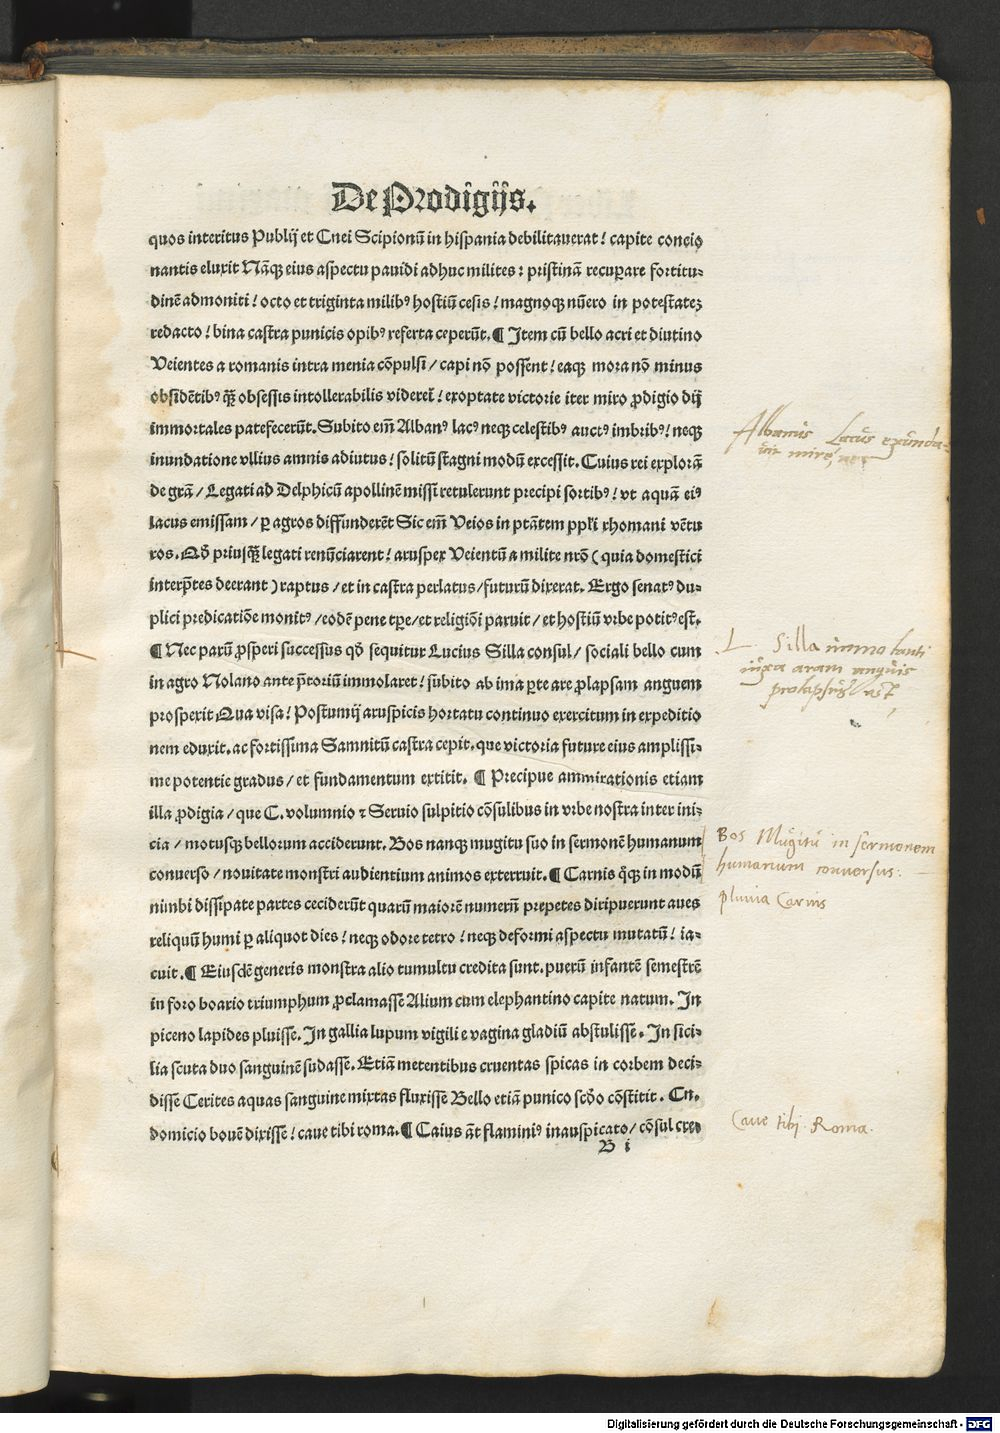 De Prodigijs.
quos interitus Publij et Cnei Scipionū in hispania debilitauerat! capite concio
nantis eluxit Nāqꝫ eius aspectu pauidi adhuc milites: pristinā recuꝑare fortitu-
dinē admoniti! octo et triginta milibꝰ hostiū cesis! magnoqꝫ nūero in potestateꝫ
redacto! bina castra punicis opibꝰ referta ceperūt. ¶ Item cū bello acri et diutino
Veientes a romanis intra menia cōpulsi / capi nō possent! eaqꝫ mora nō minus
obsidētibꝰ ꝙ̄ obsessis intollerabilis videret̄! exoptate victorie iter miro ꝓdigio dij
immortales patefecerūt. Subito em̄ Albanꝰ lacꝰ neqꝫ celestibꝰ auctꝰ imbribꝰ! neqꝫ
inundatione vllius amnis adiutus! solitū stagni modū excessit. Cuius rei explorā
de grā / Legati ad Delphicū apollinē missi retulerunt precipi sortibꝰ! vt aquā eiꝰ
lacus emissam / ꝑ agros diffunderēt Sic em̄ Veios in ptātem ppl̄i rhomani vētu
ros. Qḋ priusꝙ̄ legati renūciarent! aruspex Veientū a milite nrō (quia domestici
interp̄tes deerant) raptus / et in castra perlatus / futurū dixerat. Ergo senatꝰ du-
plici predicatiōe monitꝰ / eodē pene tꝑe / et religiōi paruit / et hostiū vrbe potitꝰ est.
¶ Nec parū ꝓsperi successus qḋ sequitur Lucius Silla consul / sociali bello cum
in agro Nolano ante p̄toriū immolaret! subito ab ima ꝑte are ꝓlapsam anguem
prospexit Qua visa! Postumij aruspicis hortatu continuo exercitum in expeditio
nem eduxit. ac fortissima Samnitū castra cepit. que victoria future eius amplissi-
me potentie gradus / et fundamentum extitit. ¶ Precipue ammirationis etiam
illa ꝓdigia / que C. volumnio ⁊ Seruio sulpitio cōsulibus in vrbe nostra inter ini-
cia / motusqꝫ bellorum acciderunt. Bos nanqꝫ mugitu suo in sermonē humanum
conuerso / nouitate monstri audientium animos exterruit. ¶ Carnis q̄qꝫ in modū
nimbi dissipate partes ceciderūt quarū maiorē numerū prepetes diripuerunt aues
reliquū humi ꝑ aliquot dies! neqꝫ odore tetro! neqꝫ deformi aspectu mutatū! ia-
cuit. ¶ Eiusdē generis monstra alio tumultu credita sunt. puerū infantē semestrē
in foro boario triumphum ꝓclamasse Alium cum elephantino capite natum. In
piceno lapides pluisse. In gallia lupum vigili e vagina gladiū abstulisse. In sici-
lia scuta duo sanguinē sudasse. Etiā metentibus cruentas spicas in corbem deci-
disse Cerites aquas sanguine mixtas fluxisse Bello etiā punico scḋo cōstitit. Cn.
domicio bouē dixisse! caue tibi roma. ¶ Caius āt flaminiꝰ inauspicato / cōsul cre-
B i
Albanus Lacus exunda-
uit mire
L. Silla immolanti
iuxta aram anguis
prolapsus est
Bos Mugitū in sermonem
humanum conuersus:
pluuia Carnis
Caue tibj Roma.
Digitalisierung gefördert durch die Deutsche Forschungsgemeinschaft - DFG